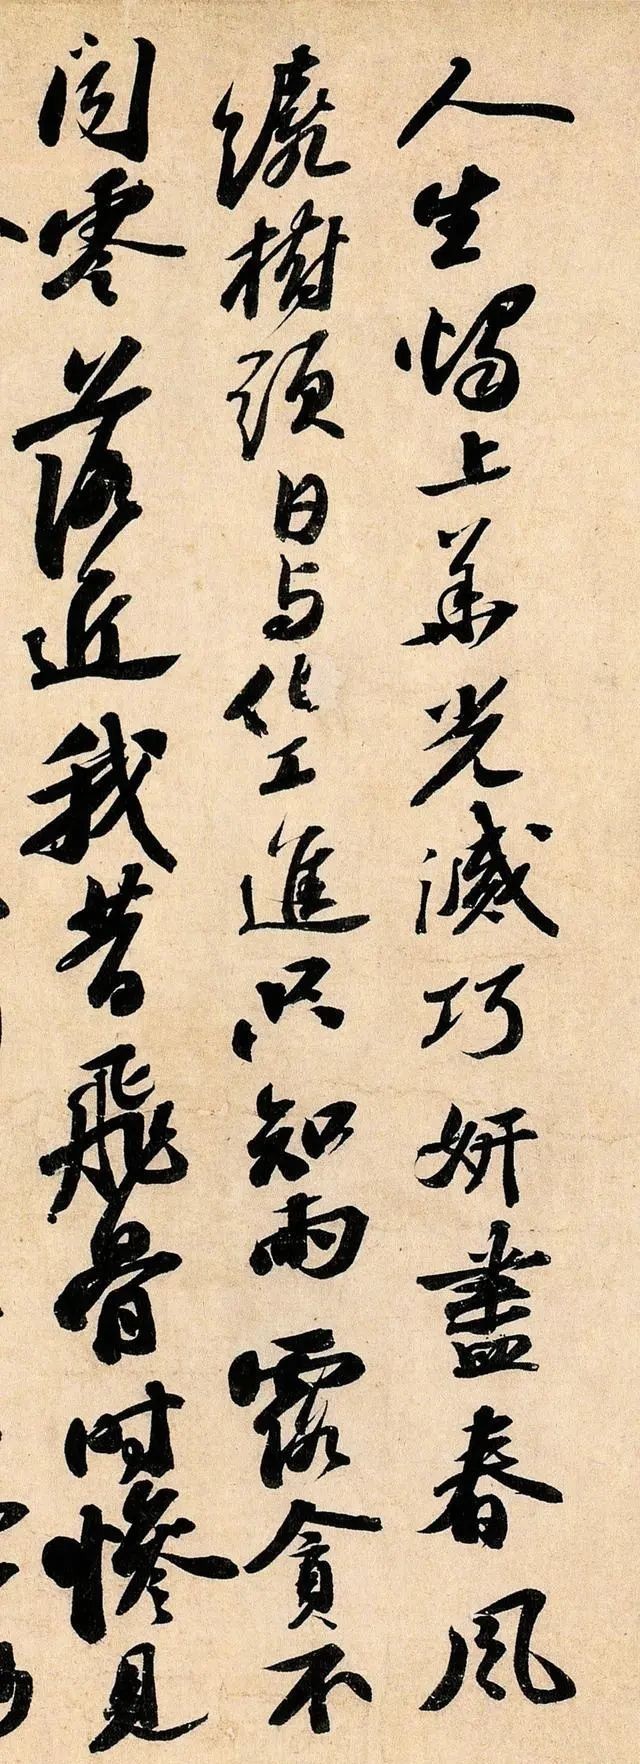 人生燭上華光滅巧妍盡春風
繞樹頭日與化工進只知雨露貪不
聞零落近我昔飛骨時慘見